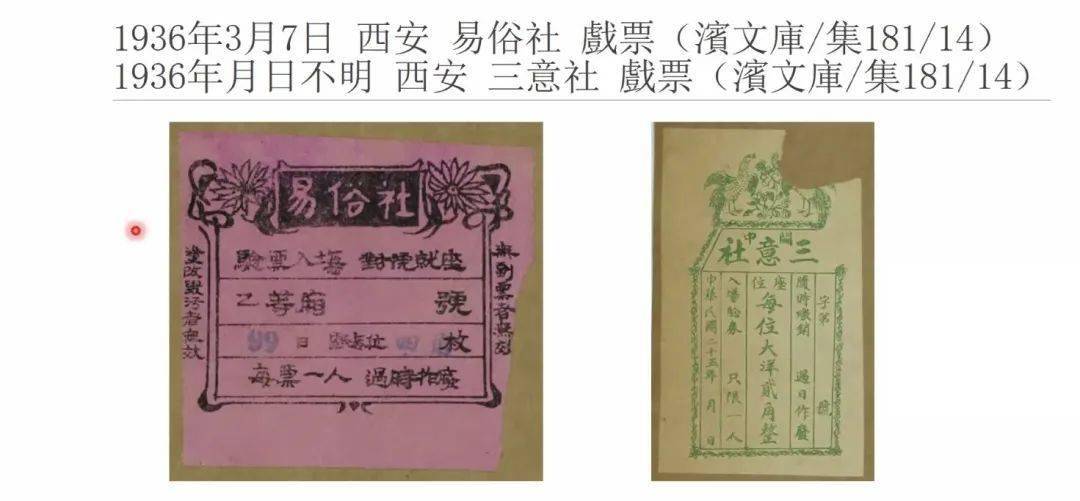 1936年3月7日 西安 易俗社 戲票（濱文庫/集181/14）
1936年月日不明 西安 三意社 戲票（濱文庫/集181/14）
易俗社
驗票入場 對號就座
乙等廂 號
99 日 四 枚
每票一人 過時作廢
塗改毀污者無效
無副票者無効
關中
三意社
字第 號
隨時繳銷 過日作廢
座位 每位大洋貳角整
入場驗券 只限一人
中華民國二十五年 月 日